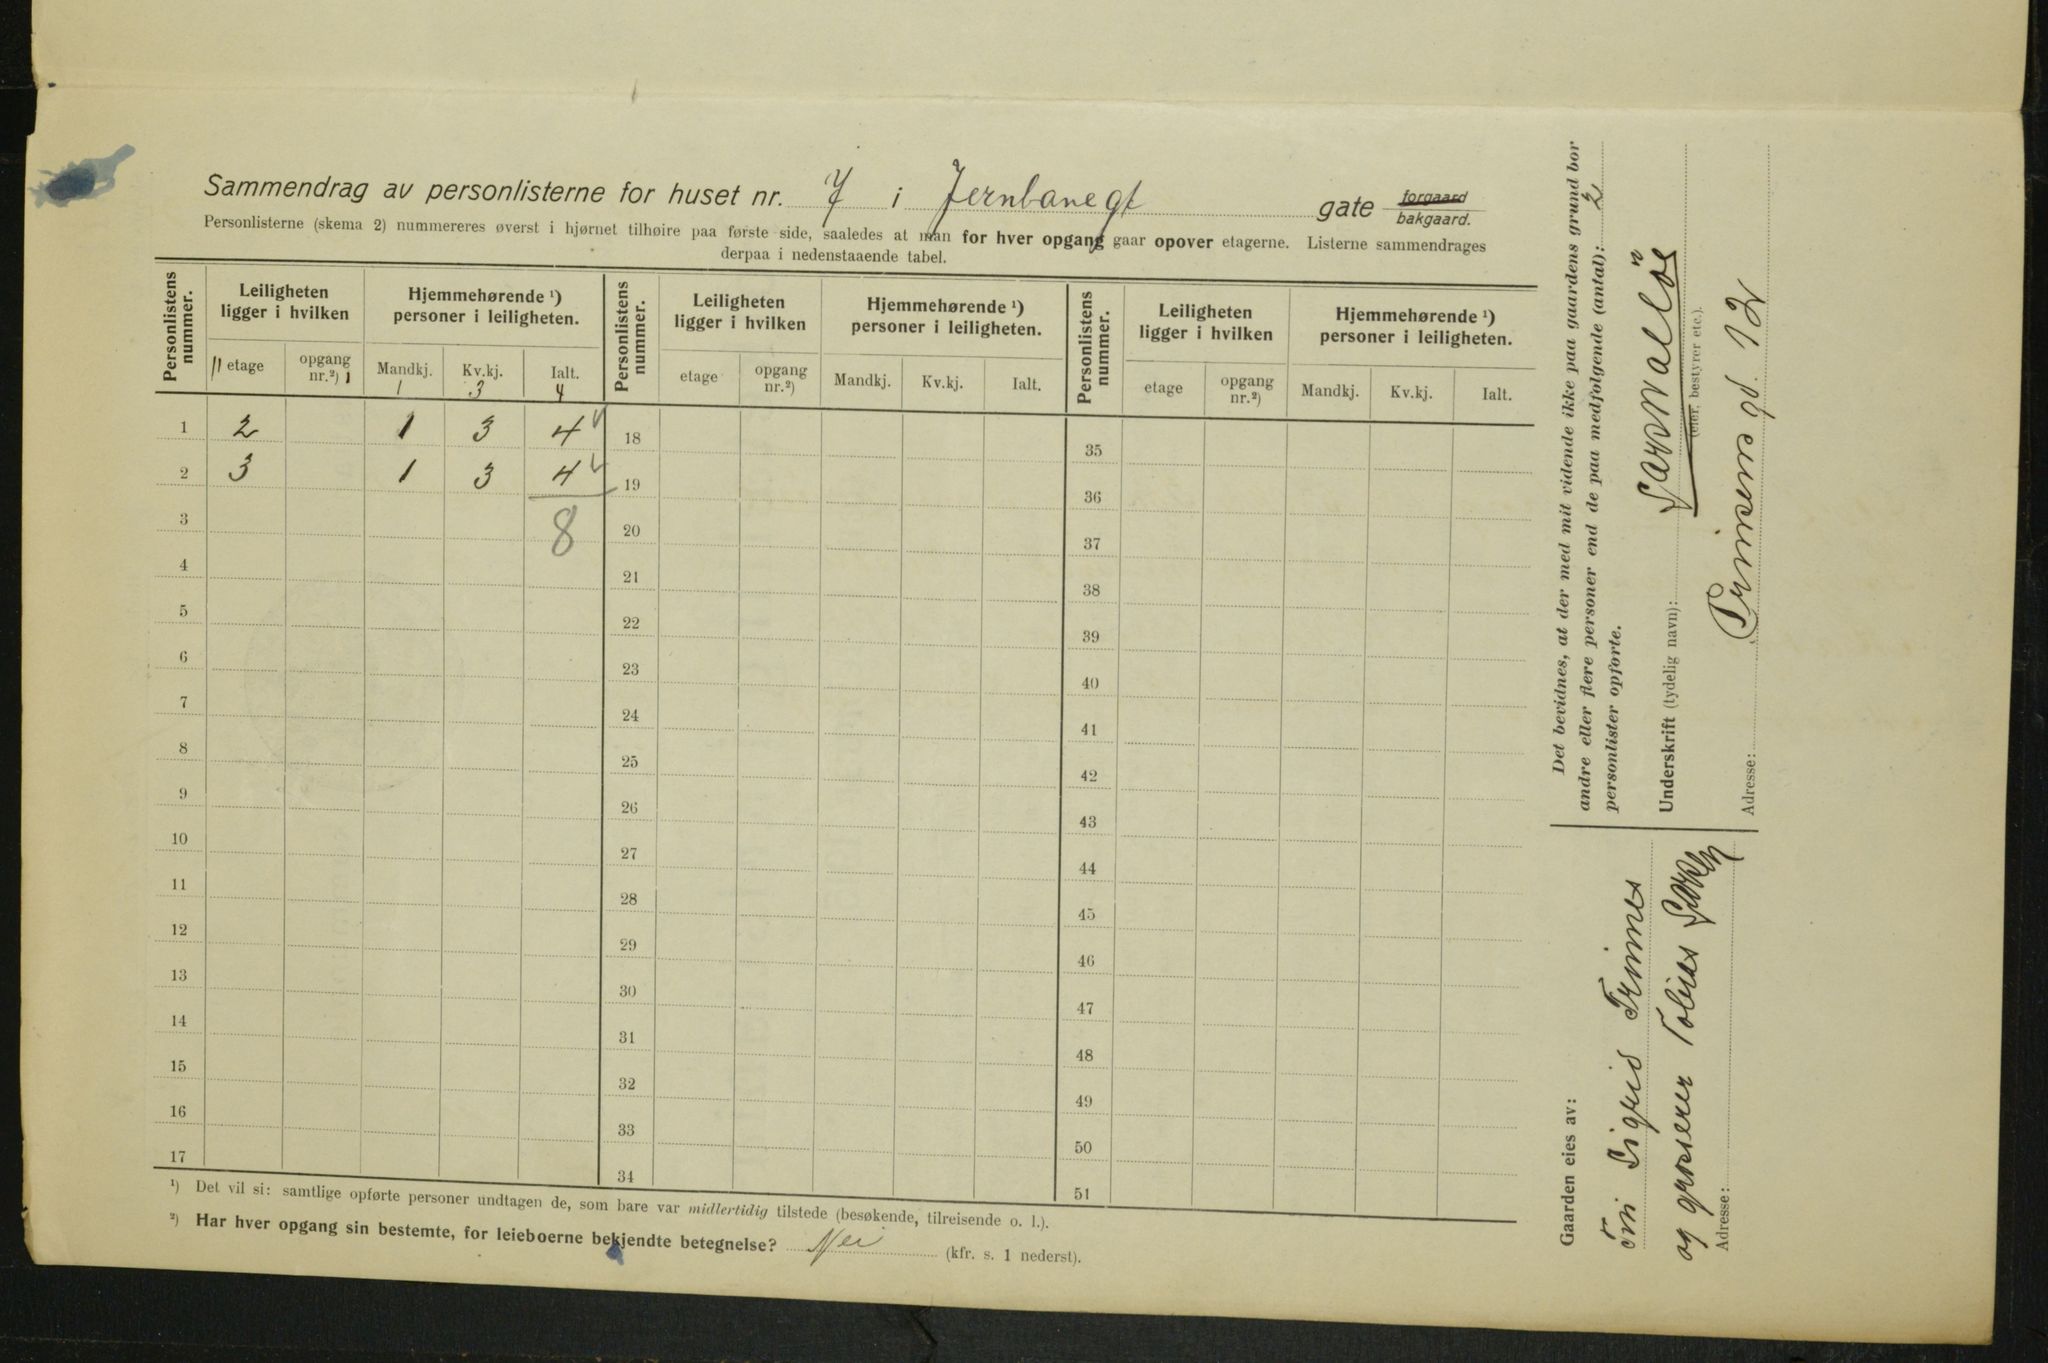 Sammendrag av personlisterne for huset nr. 7 i Jernbanegt gate forgaard bakgaard.
Personlisterne (skema 2) nummereres øverst i hjørnet tilhøire paa første side, saaledes at man for hver opgang gaar opover etagerne. Listerne sammendrages
derpaa i nedenstaaende tabel.
Personlistens nummer. Leiligheten ligger i hvilken Hjemmehørende ¹) personer i leiligheten. Personlistens nummer. Leiligheten ligger i hvilken Hjemmehørende ¹) personer i leiligheten. Personlistens nummer. Leiligheten ligger i hvilken Hjemmehørende ¹) personer i leiligheten.
11 etage opgang nr.²) 1 Mandkj. Kv.kj. Ialt. etage opgang nr.²) Mandkj. Kv.kj. Ialt. etage opgang nr.²) Mandkj. Kv.kj. Ialt.
1 3 4
1 2 1 3 4 18 35
2 3 1 3 4 19 36
3 8 20 37
4 21 38
5 22 39
6 23 40
7 24 41
8 25 42
9 26 43
10 27 44
11 28 45
12 29 46
13 30 47
14 31 48
15 32 49
16 33 50
17 34 51
¹) Det vil si: samtlige opførte personer undtagen de, som bare var midlertidig tilstede (besøkende, tilreisende o. l.).
²) Har hver opgang sin bestemte, for leieboerne bekjendte betegnelse? Nei (kfr. s. 1 nederst).
Det bevidnes, at der med mit vidende ikke paa gaardens grund bor
andre eller flere personer end de paa medfolgende (antal): 2
personlister opforte.
Underskrift (tydelig navn):
(eier, bestyrer etc.).
Adresse: Prinsens gt. 12
Gaarden eies av:
Sigrid Trimes
og grosserer Tobias
Adresse: